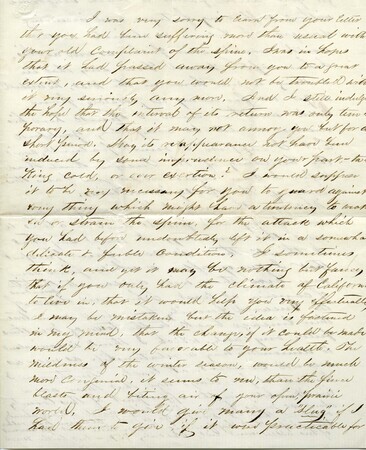 I was very sorry to learn from your letter
that you had been suffering more than usual with
your old Complaint of the spine. I was in hopes
that it had passed away from you to a great
extent, and that you would not be troubled with
it very seriously any more. And I still indulge
the hope that the interval of its return was only tem-
porary, and that it may not annoy you but for a
short period. May its reappearance not have been
induced by some imprudence on your part - tak-
king cold, or over exertion? I would suppose
it to be very necessary for you to guard against
every thing which might have a tendency to
or strain the spine, for the attack which
you had before undoubtedly left it in a somewhat
delicate & feeble condition. I sometimes
think, and yet it may be nothing but fancy,
that if you only had the climate of California
to live in, that it would help you very
I may be mistaken but the idea is fastened
in my mind, that the change, if it could be made
would be very favorable to your health. The
mildness of the winter season, would be much
more congenial, it seems to me, than the
blasts and biting air of your open prairie
world. I would give many a "slug" if I
had them to you if it were practicable for